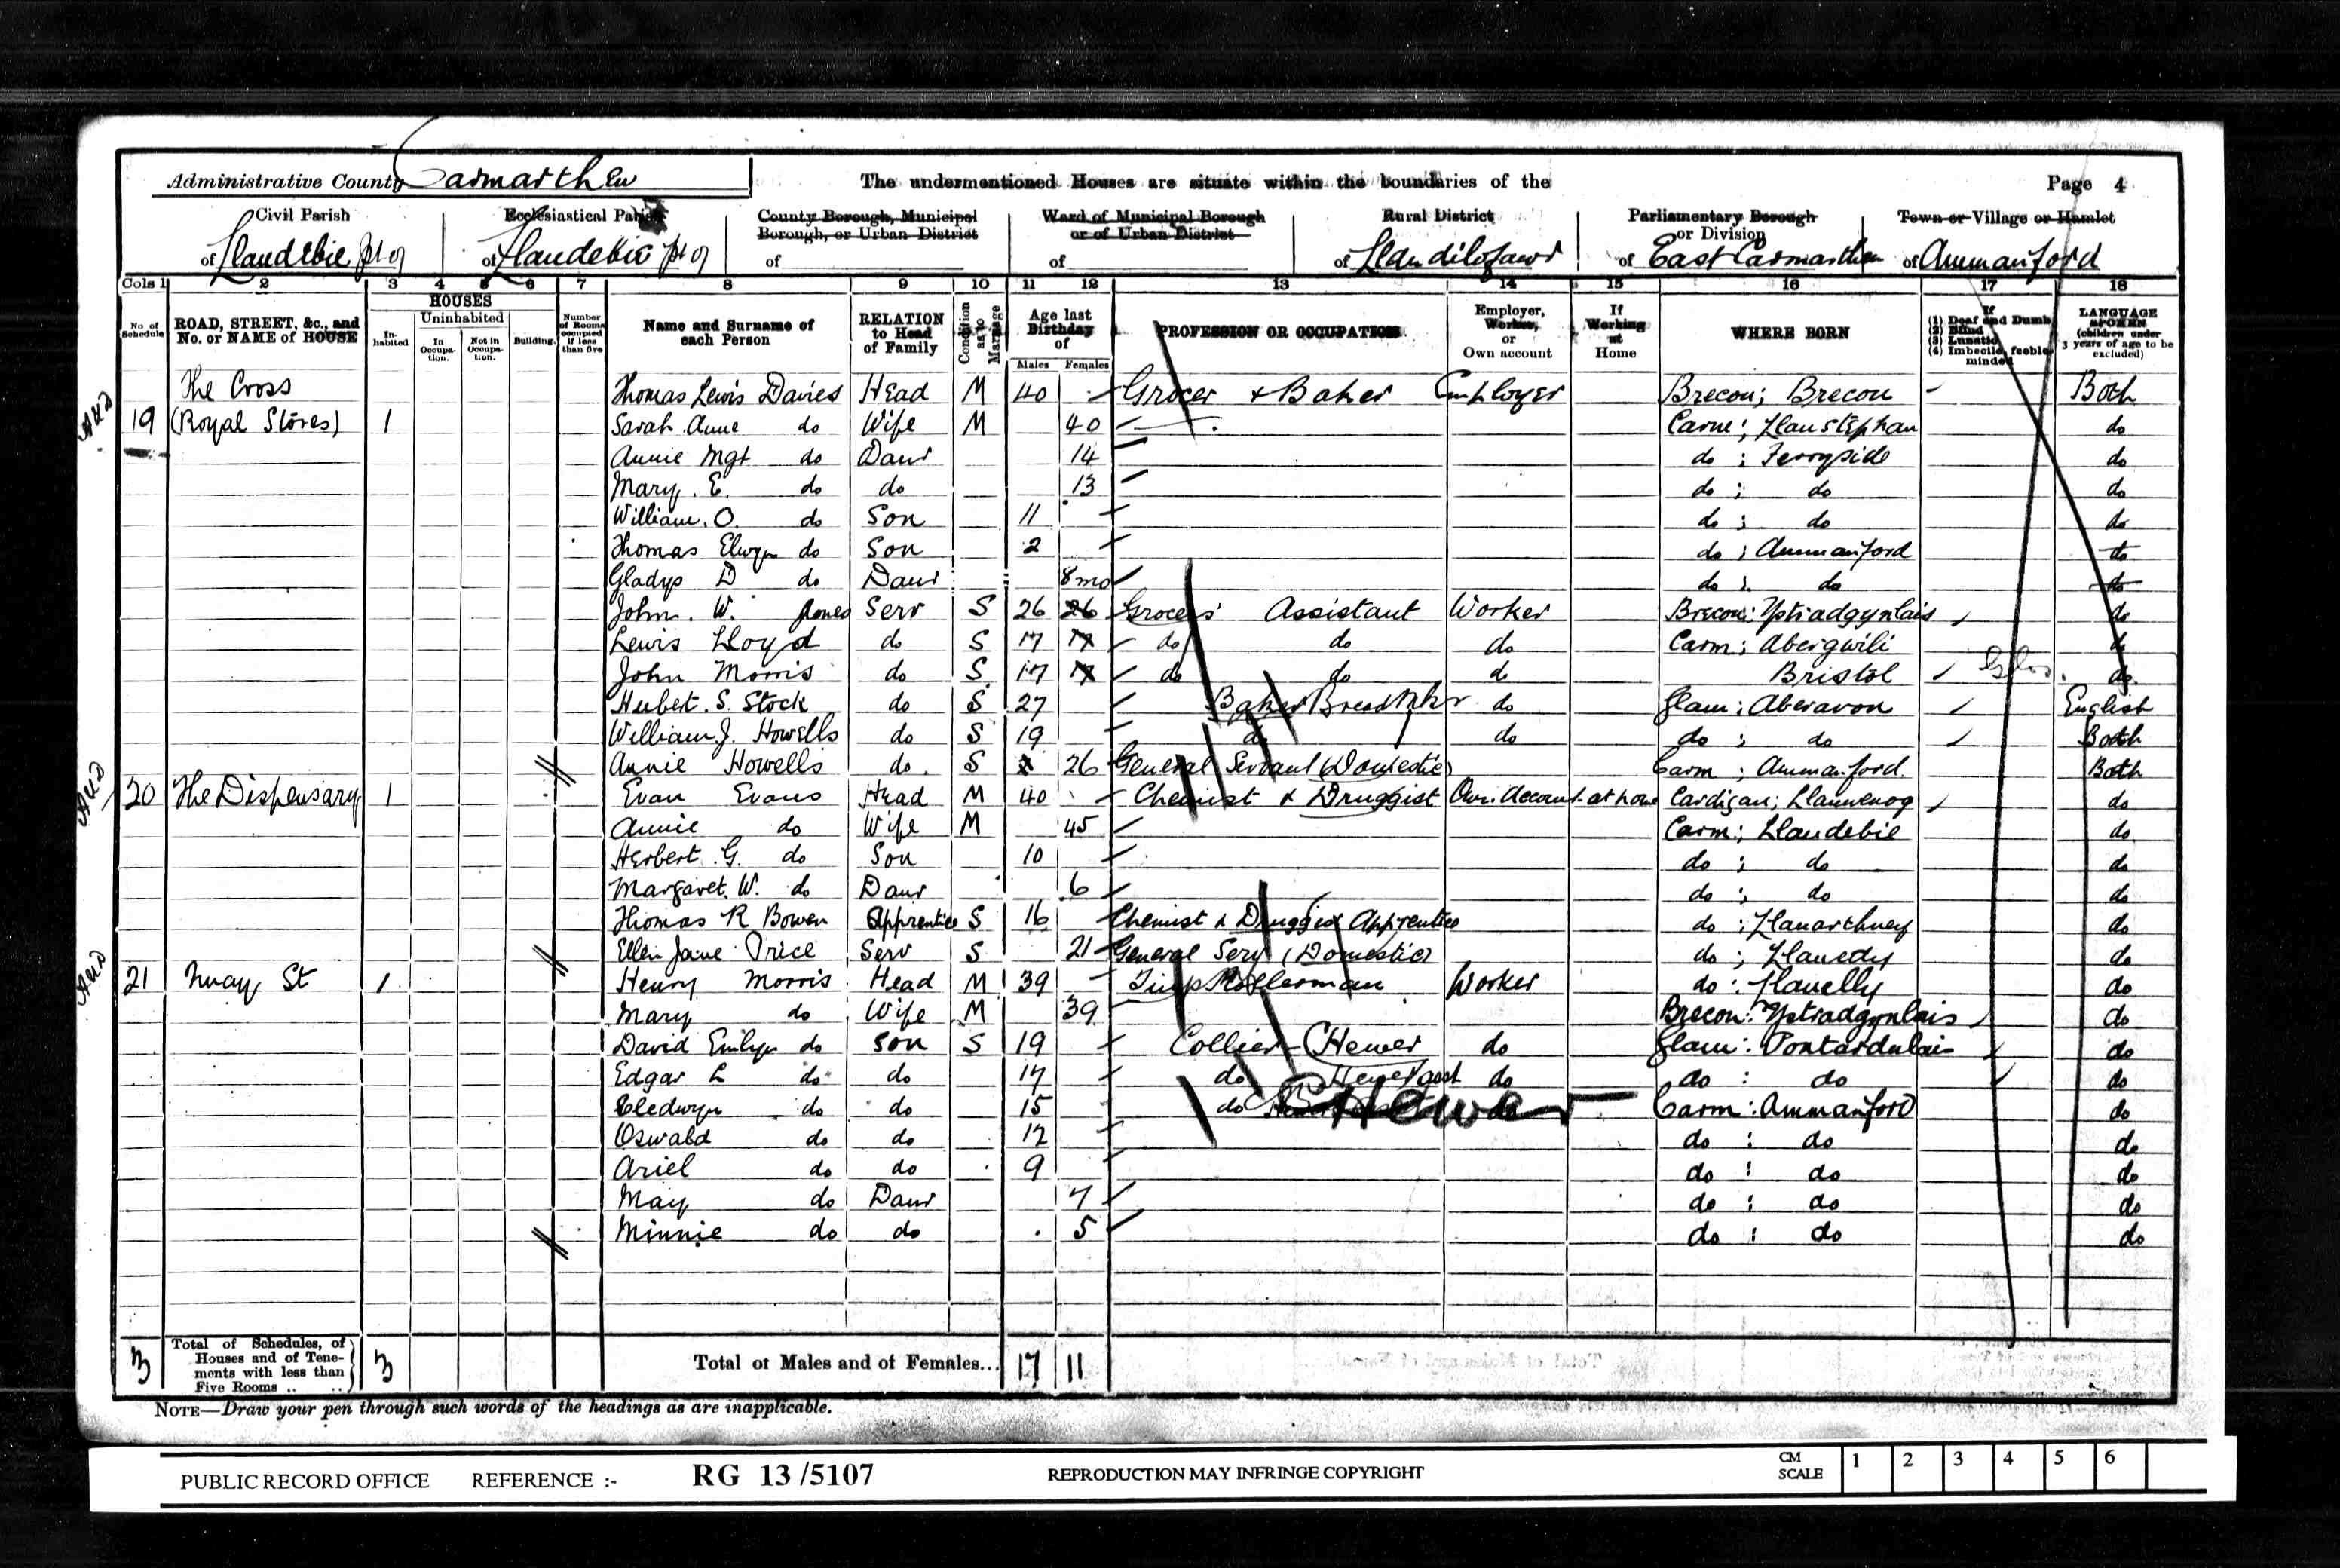 Administrative County Carmarthen The undermentioned Houses are situate within the boundaries of the Page 4
Civil Parish Ecclesiastical Parish County Borough, Municipal Borough, or Urban District Ward of Municipal Borough or of Urban District Rural District Parliamentary Borough or Division Town or Village or Hamlet
of Llandebie pt of of Llandebie pt of of of of Llandilofawr of East Carmarthen of Ammanford
Cols 1 2 3 4 5 6 7 8 9 10 11 12 13 14 15 16 17 18
No. of Schedule ROAD, STREET, &c., and No. or NAME of HOUSE HOUSES In-habited Uninhabited In Occupa-tion. Not in Occupa-tion. Building. Number of Rooms occupied if less than five Name and Surname of each Person RELATION to Head of Family Condition as to Marriage Age last Birthday of Males Females PROFESSION OR OCCUPATION Employer, Worker, or Own account If Working at Home WHERE BORN If (1) Deaf and Dumb (2) Blind (3) Lunatic (4) Imbecile, feeble-minded LANGUAGE SPOKEN (children under 3 years of age to be excluded)
The Cross Thomas Lewis Davies Head M 40 Grocer & Baker Employer Brecon; Brecon Both
19 (Royal Stores) 1 Sarah Anne do Wife M 40 Carm; Llanstephan do
Annie Mgt do Daur 14 do ; Ferryside do
Mary. E. do do 13 do ; do do
William. O. do Son 11 do ; do do
Thomas Elwyn do Son 2 do ; Ammanford do
Gladys D do Daur 8mo do ; do do
John. W. Jones Serv S 26 26 Grocers' Assistant Worker Brecon: Ystradgynlais do
Lewis Lloyd do S 17 17 do do do Carm; Abergwili do
John Morris do S 17 17 do do do Bristol do
Hubert. S. Stock do S 27 Baker Bread do Glam; Aberavon English
William J. Howells do S 19 do do do ; do Both
Annie Howells do. S 26 General Servant (Domestic) Carm ; Ammanford. Both
20 The Dispensary 1 Evan Evans Head M 40 Chemist & Druggist Own Account at home Cardigan; Llanwenog do
Annie do Wife M 45 Carm; Llandebie do
Herbert. G. do Son 10 do ; do do
Margaret. W. do Daur 6 do ; do do
Thomas R Bowen Apprentice S 16 Chemist & Druggist Apprentice do ; Llanarthney do
Ellen Jane Price Serv S 21 General Serv (Domestic) do ; Llanedy do
21 Quay St 1 Henry Morris Head M 39 Worker do : Llanelly do
Mary do Wife M 39 Brecon: Ystradgynlais do
David Emlyn do Son S 19 Collier (Hewer do Glam: Pontardulais do
Edgar L do do 17 do Hewer do do : do do
Cledwyn do do 15 do Hewer Carm: Ammanford do
Oswald do do 12 do : do do
Ariel do do 9 do : do do
May do Daur 7 do : do do
Minnie do do 5 do : do do
3 Total of Schedules, of Houses and of Tene-ments with less than Five Rooms .. .. 3 Total of Males and of Females... 17 11
NOTE—Draw your pen through such words of the headings as are inapplicable.
PUBLIC RECORD OFFICE REFERENCE :- RG 13/5107 REPRODUCTION MAY INFRINGE COPYRIGHT CM SCALE 1 2 3 4 5 6